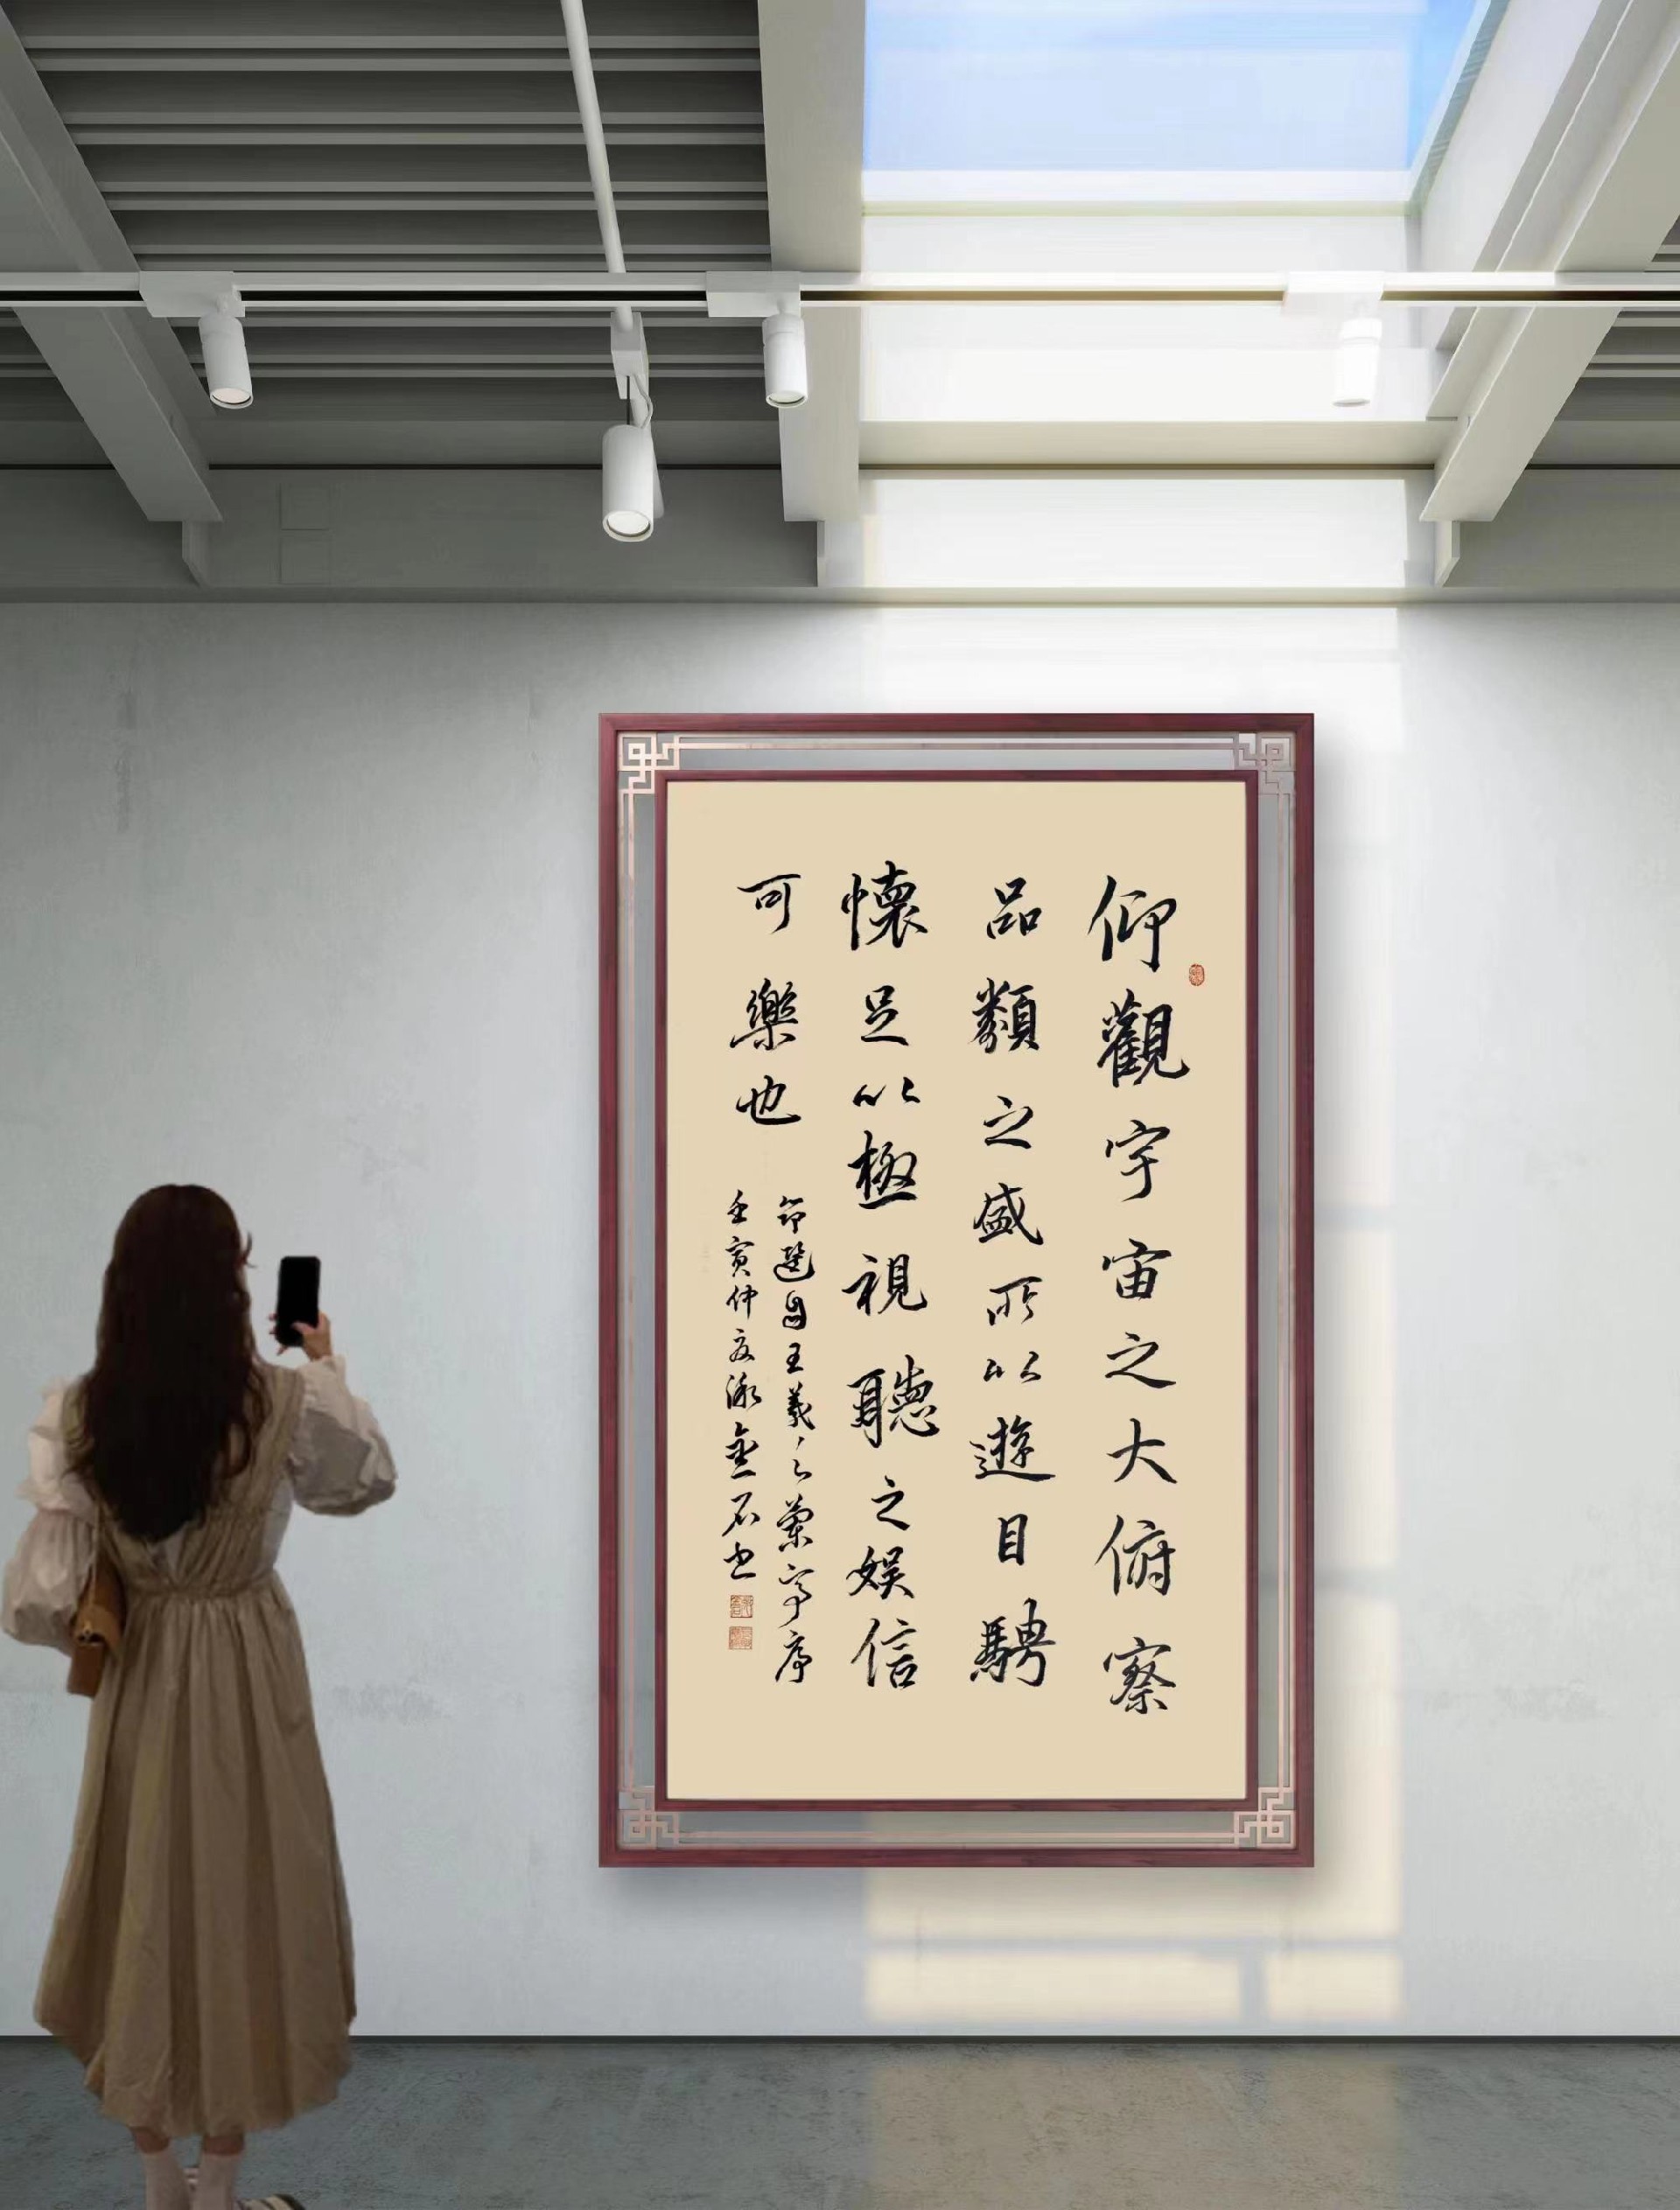 仰觀宇宙之大俯察
品類之盛所以遊目騁
懷足以極視聽之娛信
可樂也
節選自王羲之蘭亭序
壬寅仲夏金石書